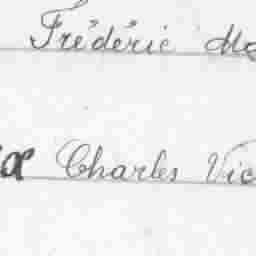 Frédéric
Charles Vic